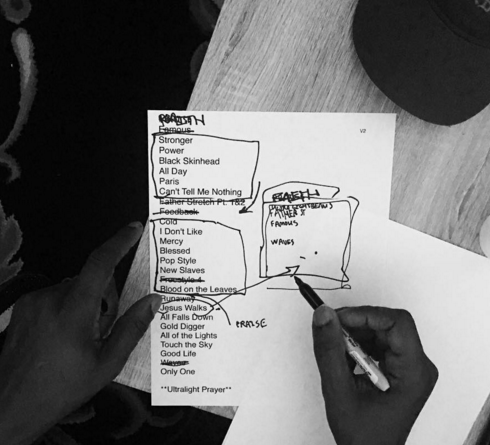 V2
Famous
Stronger
Power
Black Skinhead
All Day
Paris
Can't Tell Me Nothing
Father Stretch Pt. 1&2
Feedback
Cold
I Don't Like
Mercy
Blessed
Pop Style
New Slaves
Freestyle 4
Blood on the Leaves
Runaway
Jesus Walks
All Falls Down
Gold Digger
All of the Lights
Touch the Sky
Good Life
Waves
Only One
**Ultralight Prayer**
FATHER
FAMOUS
WAVES
PRAISE